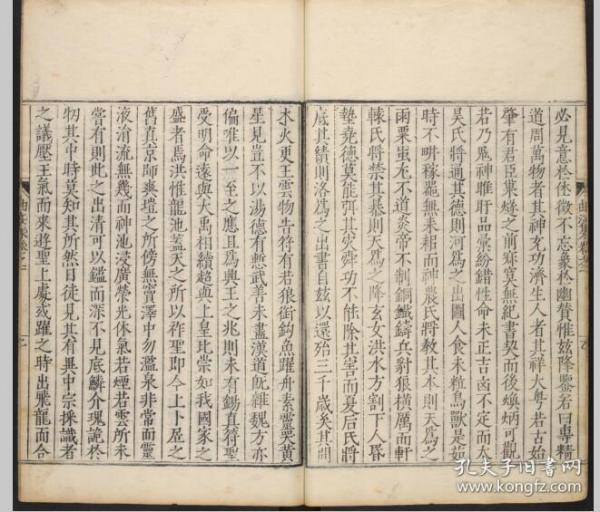 必見意於休徵不忘棄於幽賛惟玆降鑒若曰專精
道周萬物者其神充功濟生人者其祥大粤若古始
肇有君臣巢燧之前寂寞無紀書契而後煥炳可觀
若乃鬼神睢盱品彙紛錯性命未正吉凶不定而太
昊氏將通其德則河爲之出圖人食未粒鳥獸是
時不畊稼罷無耒耜而神農氏將敎其本則天爲之
雨粟蚩尤不道炎帝不制銅鐵鑄兵豺狼橫厲而軒
轅氏將禁其暴則天爲之降玄女洪水方割下人昏
墊堯德莫能弭其災舜功不能除其害而夏后氏將
底其績則洛爲之出書自玆以還殆三千歲矣其間
木火更王雲物告符有若狼銜鈎魚躍舟素靈哭黄
星見豈不以湯德有慙武善未盡漢道旣雜魏方亦
偏唯以一至之應且爲興王之兆則未有錫眞符聖
受明命遂與大禹相續與上皇比崇如我國家之
盛者焉洪惟龍池蓋天之所以祚聖即今上卜居之
舊眞京師爽塏之所傍無竇澤中勿濫泉非常而靈
液渝流無幾而神池浸廣榮光休氣若煙若雲所未
嘗有則此之出清可以鑑而深不見底鱗介瑰詭於
牣其中時莫知其所然日徒見其有異中宗採識者
之議壓王氣而来遊聖上處或躍之時出飛龍而合
孔夫子旧书网
www.kongfz.com